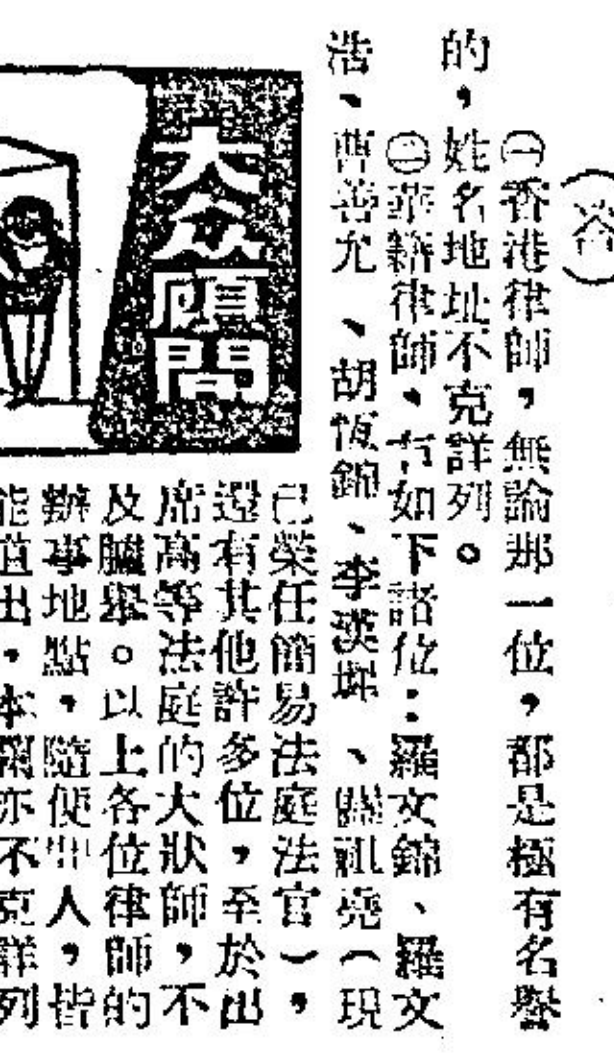 （答）
㊀香港律師，無論那一位，都是極有名譽
的，姓名地址不克詳列。
㊁華籍律師、有如下諸位：羅文錦、羅文
浩、曹善允、胡恆錦、李漢墀、關祖堯（現
已榮任簡易法庭法官），
還有其他許多位，至於出
席高等法庭的大狀師，不
及臚舉。以上各位律師的
辦事地點，隨便人，皆
能道出，本欄亦不克詳列
大众顧問